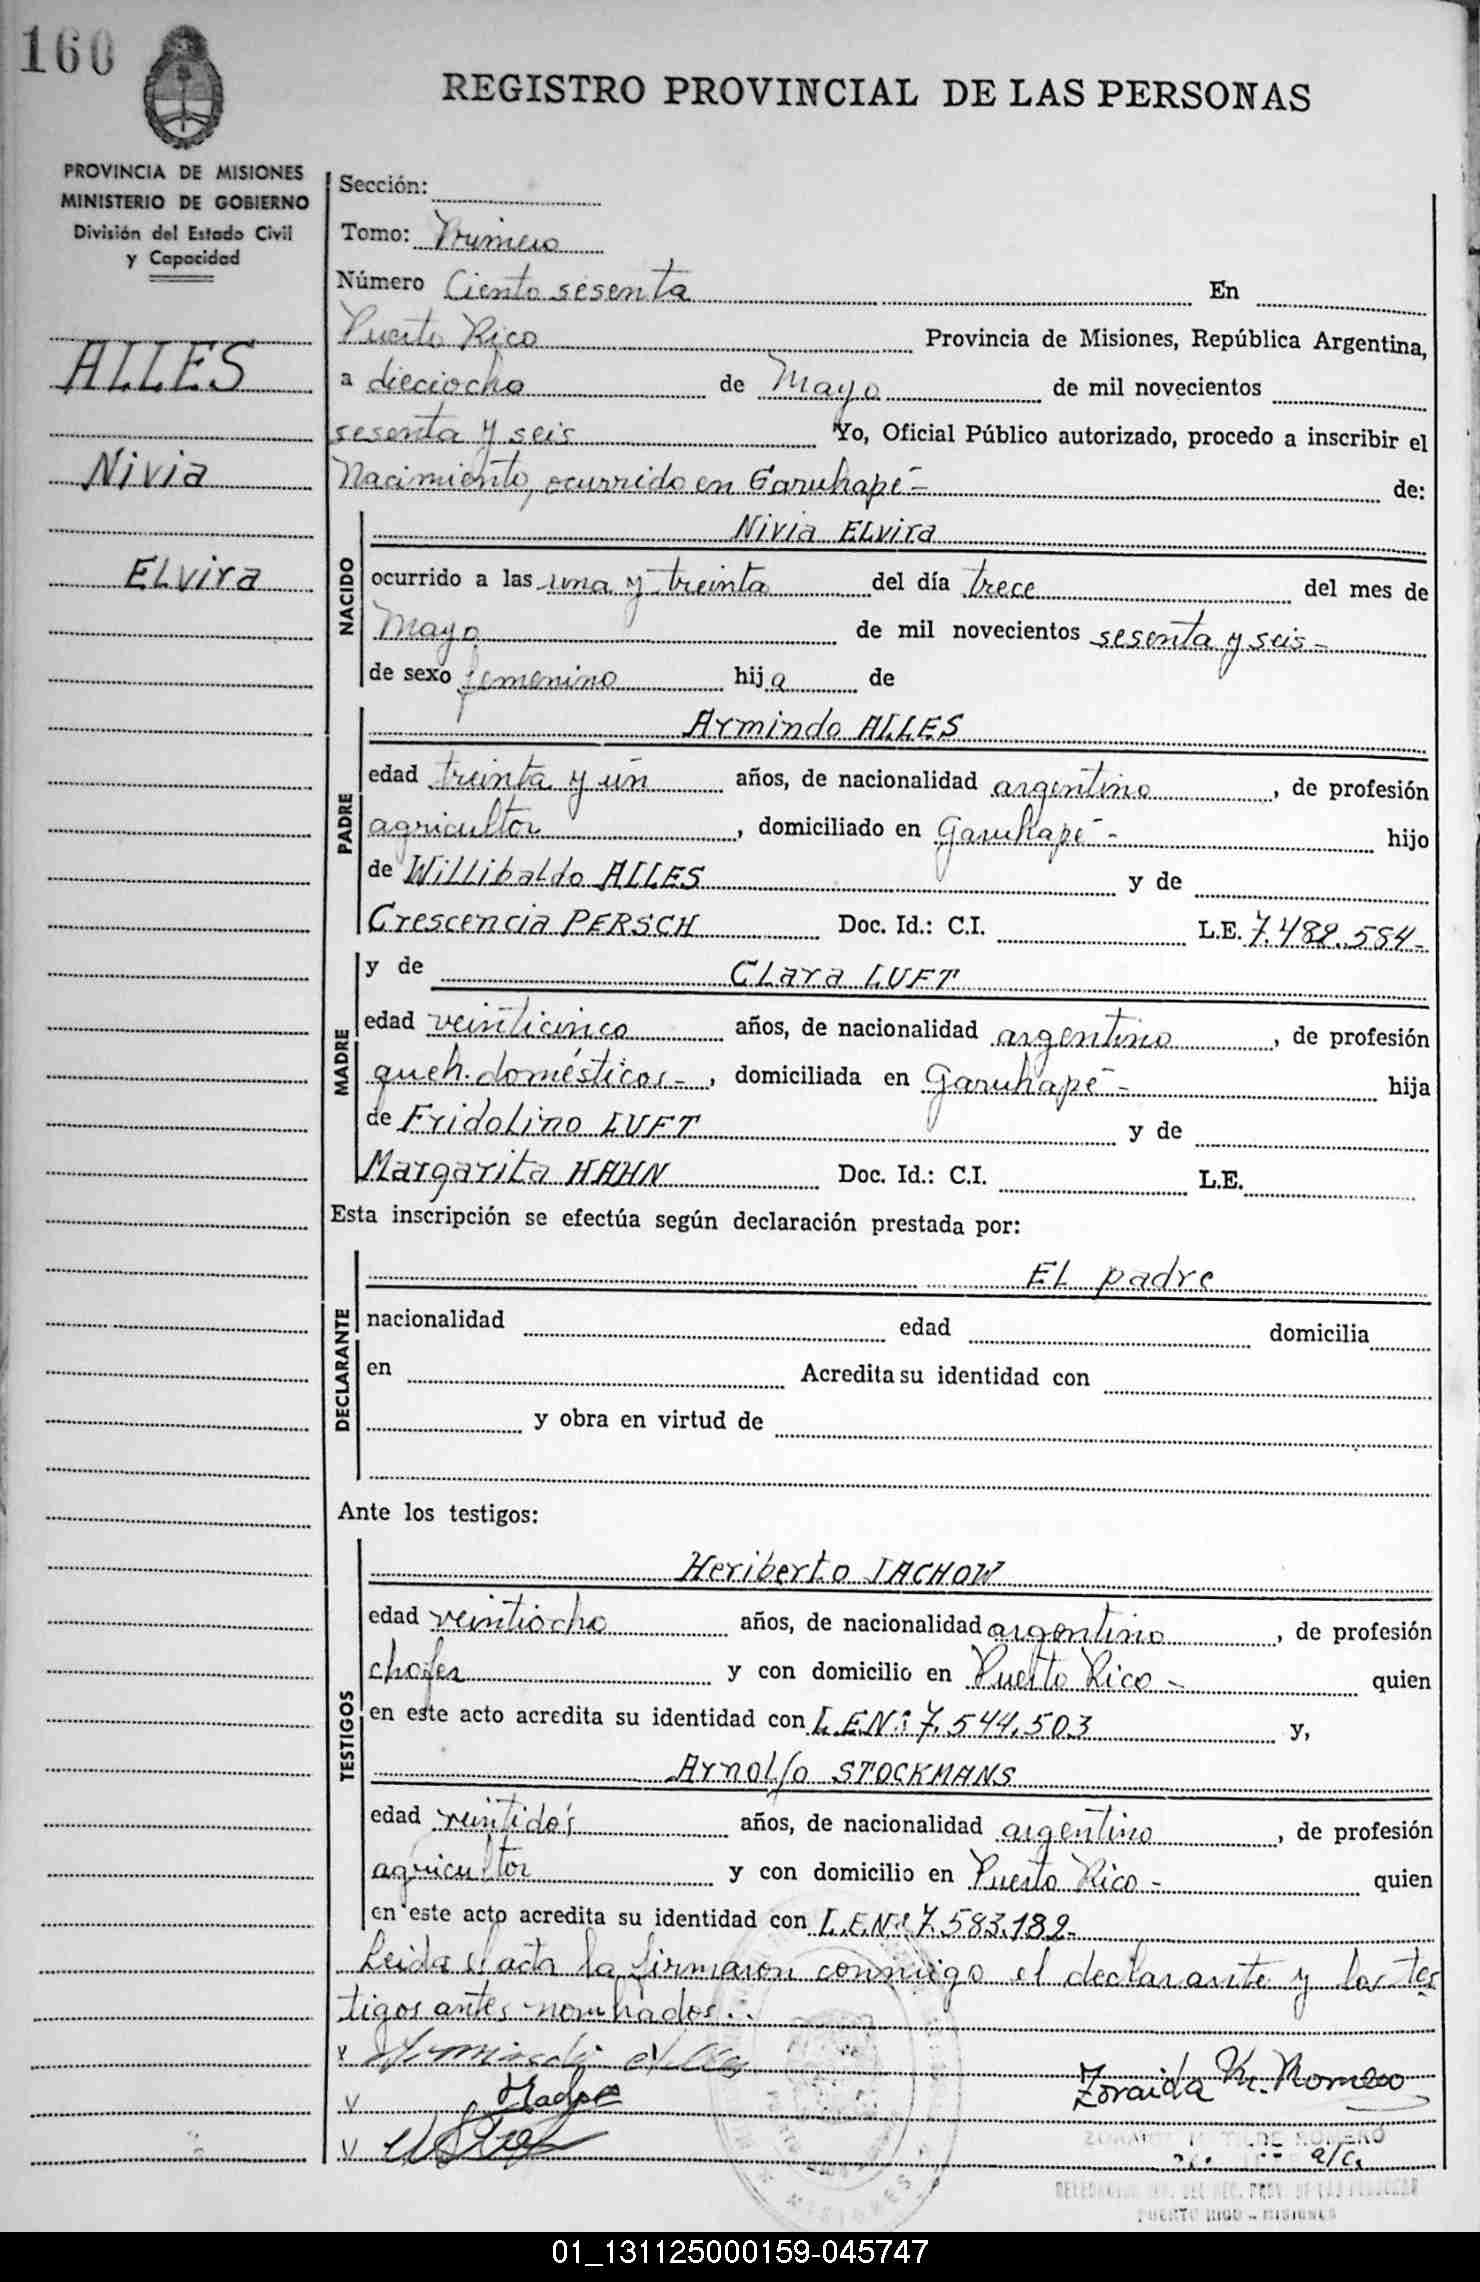 160
REGISTRO PROVINCIAL DE LAS PERSONAS
PROVINCIA DE MISIONES
MINISTERIO DE GOBIERNO
División del Estado Civil
y Capacidad
ALLES
Nivia
Elvira
Sección:
Tomo: Primero
Número Ciento sesenta En
Puerto Rico Provincia de Misiones, República Argentina,
a dieciocho de Mayo de mil novecientos
sesenta y seis Yo, Oficial Público autorizado, procedo a inscribir el
Nacimiento, ocurrido en Garuhapé- de:
NACIDO
Nivia Elvira
ocurrido a las una y treinta del día trece del mes de
Mayo de mil novecientos sesenta y seis-
de sexo femenino hija de
PADRE
Armindo ALLES
edad treinta y un años, de nacionalidad argentino, de profesión
agricultor, domiciliado en Garuhapé- hijo
de Willibaldo ALLES y de
Crescencia PERSCH Doc. Id.: C.I. L.E. 7.482.584-
MADRE
y de Clara LUFT
edad veinticinco años, de nacionalidad argentino, de profesión
queh. domésticos-, domiciliada en Garuhapé- hija
de Fridolino LUFT y de
Margarita HAHN Doc. Id.: C.I. L.E.
Esta inscripción se efectúa según declaración prestada por:
DECLARANTE
El padre
nacionalidad edad domicilia
en Acredita su identidad con
y obra en virtud de
Ante los testigos:
TESTIGOS
Heriberto TACHOW
edad veintiocho años, de nacionalidad argentino, de profesión
chofer y con domicilio en Puerto Rico- quien
en este acto acredita su identidad con L.E.Nº: 7.544.503 y,
Arnolfo STOCKMANS
edad veintidós años, de nacionalidad argentino, de profesión
agricultor y con domicilio en Puerto Rico- quien
en este acto acredita su identidad con L.E.Nº: 7.583.182-
Leida el acta la firmaron conmigo el declarante y los tes
tigos antes nombrados.
Zoraida M. Romero
ROMERO
a/c.
PUERTO RICO - MISIONES
01_131125000159-045747